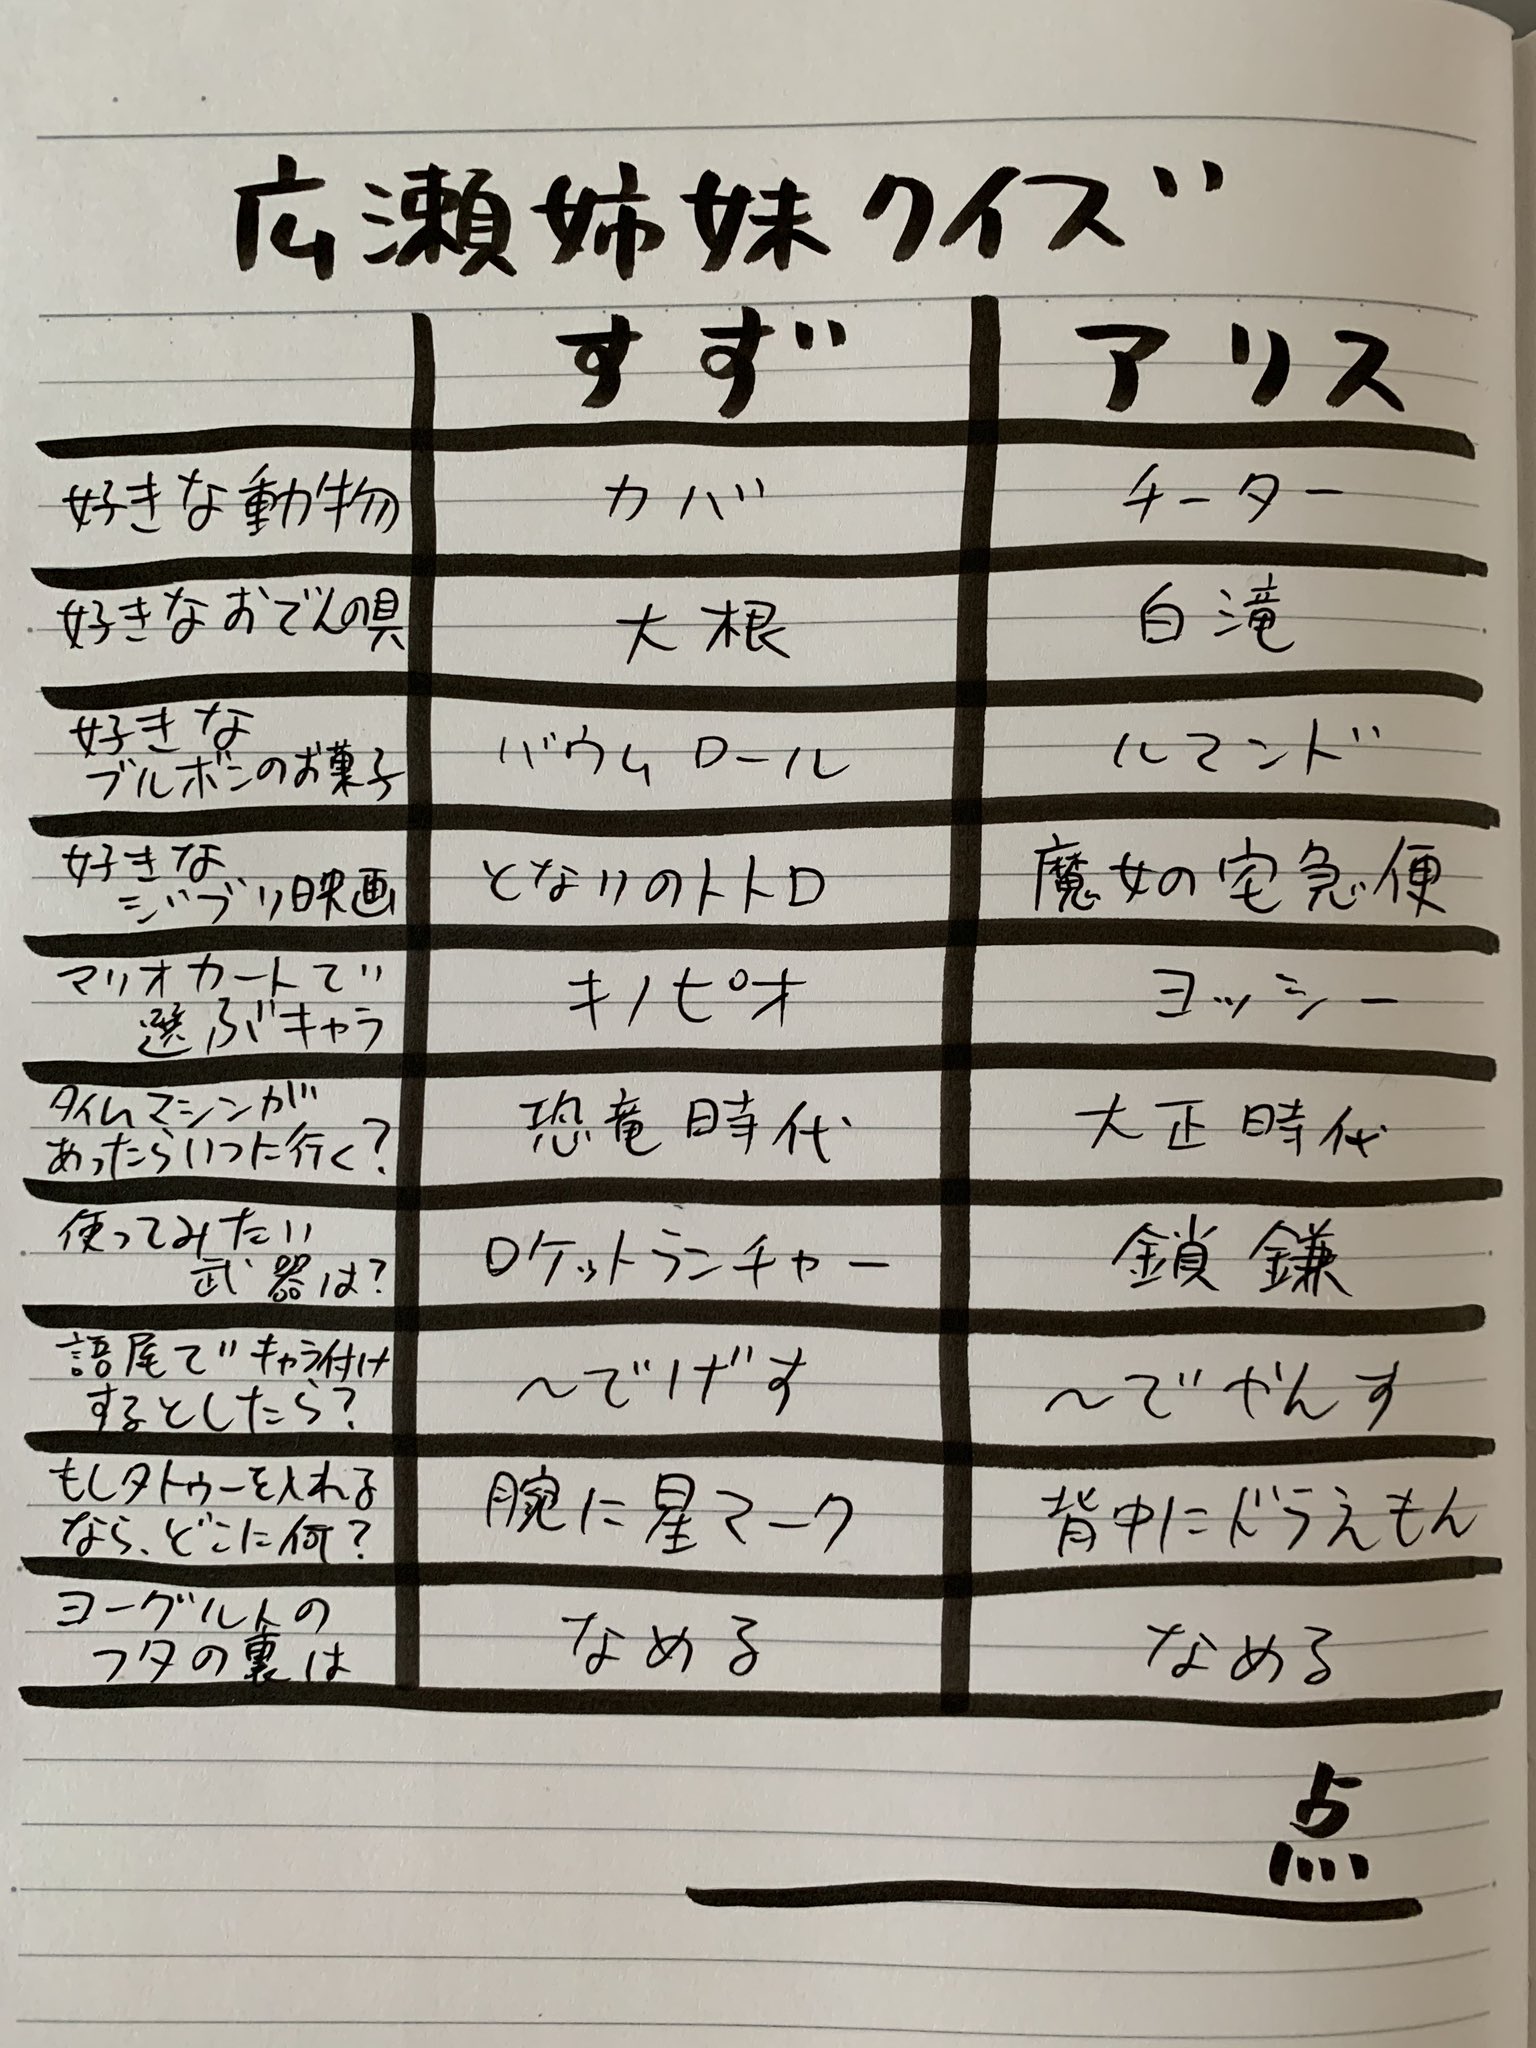 広瀬姉妹クイズ
すず アリス
好きな動物 カバ チーター
好きなおでんの具 大根 白滝
好きな
ブルボンのお菓子 バウムロール ルマンド
好きな
ジブリ映画 となりのトトロ 魔女の宅急便
マリオカートで
選ぶキャラ キノピオ ヨッシー
タイムマシンが
あったらいつに行く? 恐竜時代 大正時代
使ってみたい
武器は? ロケットランチャー 鎖鎌
語尾でキャラ付け
するとしたら? 〜でげす 〜でやんす
もしタトゥーを入れる
なら、どこに何? 腕に星マーク 背中にドラえもん
ヨーグルトの
フタの裏は なめる なめる
点